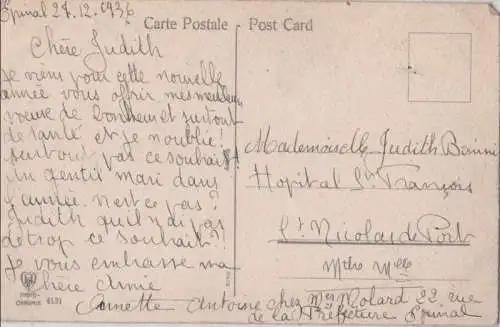 Epinal 27.12.1936
Carte Postale Post Card
Chère Judith
Je viens pour cette nouvelle
année vous offrir mes meilleurs
voeux de bonheur et surtout
de santé et je noublie!
surtout pas ce souhait
un gentil mari dans
l'année. n'est ce pas?
Judith qu'il n'ai pas
de trop ce souhait?!
Je vous embrasse ma
chère Amie
Annette Antoine chez Mme Molard 22 rue
de la Préfecture Epinal
Mademoiselle Judith
Hopital St François
St Nicolas de Port
Mthe Mlle